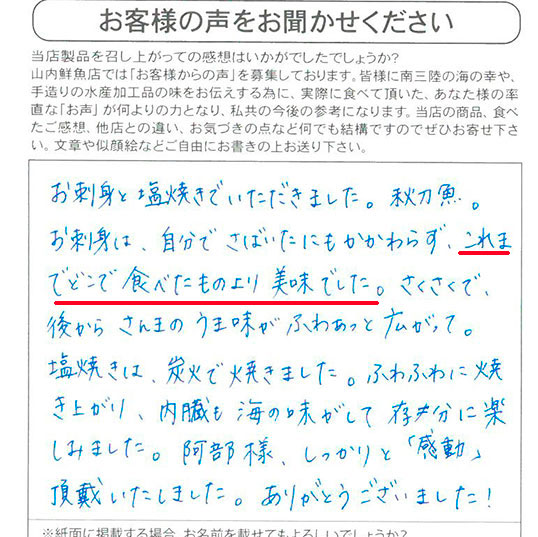 お客様の声をお聞かせください
当店製品を召し上がっての感想はいかがでしたでしょうか?
山内鮮魚店では「お客様からの声」を募集しております。皆様に南三陸の海の幸や、
手造りの水産加工品の味をお伝えする為に、実際に食べて頂いた、あなた様の率
直な「お声」が何よりの力となり、私共の今後の参考になります。当店の商品、食べ
たご感想、他店との違い、お気づきの点など何でも結構ですのでぜひお寄せ下さ
い。文章や似顔絵などご自由にお書きの上お送り下さい。
お刺身と塩焼きでいただきました。秋刀魚。
お刺身は、自分でさばいたにもかかわらず、これま
でどこで食べたものより美味でした。さくさくで、
後からさんまのうま味がふわぁっと広がって。
塩焼きは、炭火で焼きました。ふわふわに焼
き上がり、内臓も海の味がして存分に楽
しみました。阿部様、しっかりと「感動」
頂戴いたしました。ありがとうございました!
※紙面に掲載する場合、お名前を載せてもよろしいでしょうか?